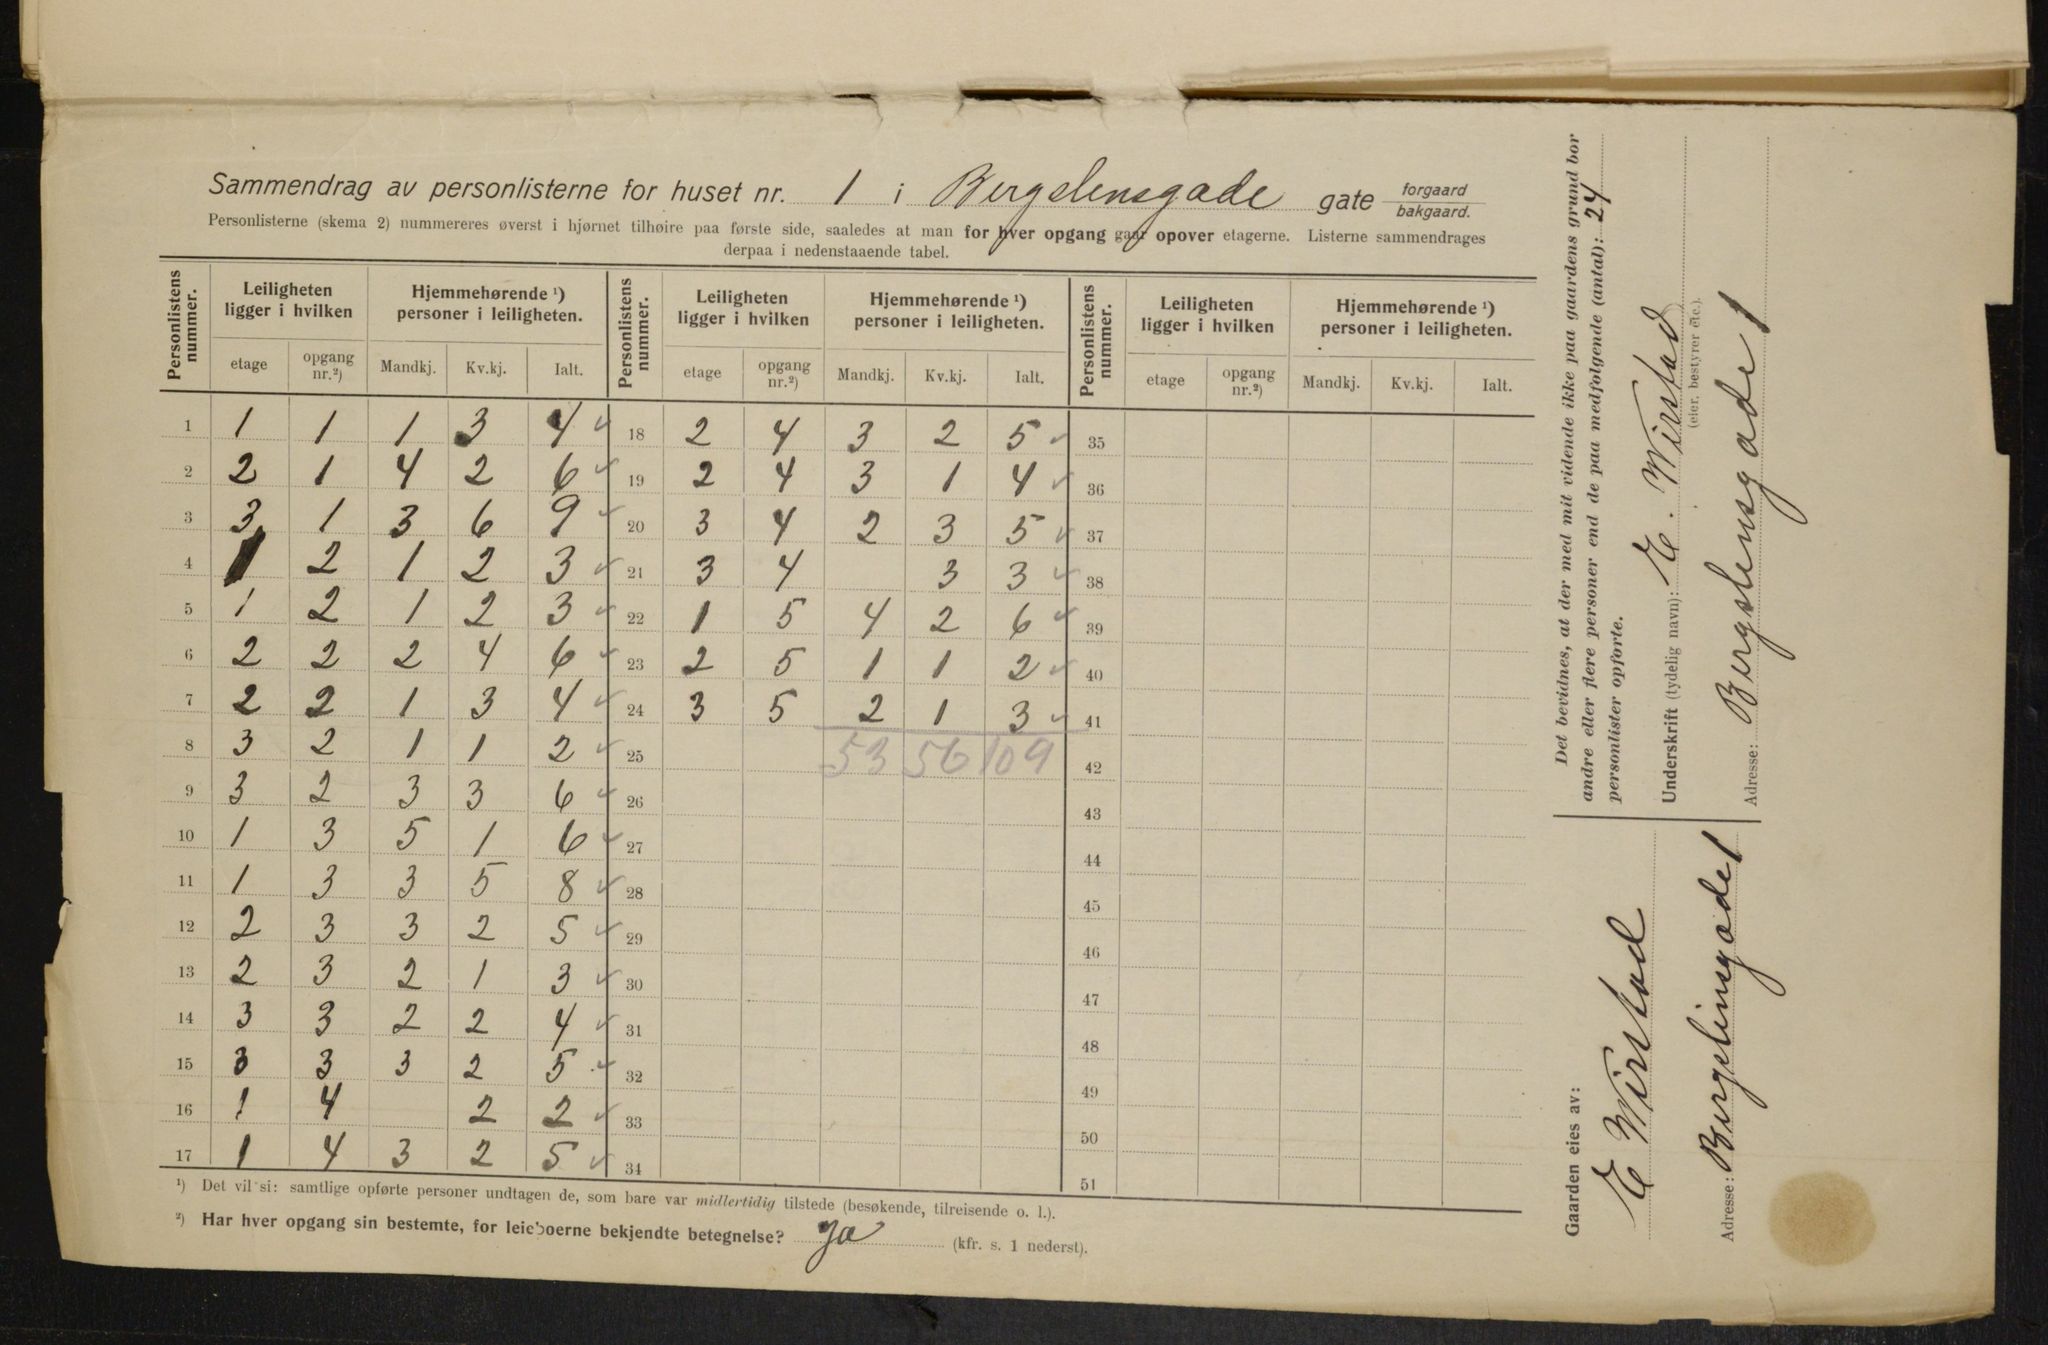 Sammendrag av personlisterne for huset nr. 1 i Bergslensgade gate forgaard bakgaard.
Personlisterne (skema 2) nummereres øverst i hjørnet tilhøire paa første side, saaledes at man for hver opgang gaar opover etagerne. Listerne sammendrages
derpaa i nedenstaaende tabel.
Personlistens nummer. | Leiligheten ligger i hvilken | Hjemmehørende ¹) personer i leiligheten. | Personlistens nummer. | Leiligheten ligger i hvilken | Hjemmehørende ¹) personer i leiligheten. | Personlistens nummer. | Leiligheten ligger i hvilken | Hjemmehørende ¹) personer i leiligheten.
etage | opgang nr.²) | Mandkj. | Kv.kj. | Ialt. | etage | opgang nr.²) | Mandkj. | Kv.kj. | Ialt. | etage | opgang nr.²) | Mandkj. | Kv.kj. | Ialt.
1 | 1 | 1 | 1 | 3 | 4 ✓ | 18 | 2 | 4 | 3 | 2 | 5 ✓ | 35
2 | 2 | 1 | 4 | 2 | 6 ✓ | 19 | 2 | 4 | 3 | 1 | 4 ✓ | 36
3 | 3 | 1 | 3 | 6 | 9 ✓ | 20 | 3 | 4 | 2 | 3 | 5 ✓ | 37
4 | 1 | 2 | 1 | 2 | 3 ✓ | 21 | 3 | 4 | | 3 | 3 ✓ | 38
5 | 1 | 2 | 1 | 2 | 3 ✓ | 22 | 1 | 5 | 4 | 2 | 6 ✓ | 39
6 | 2 | 2 | 2 | 4 | 6 ✓ | 23 | 2 | 5 | 1 | 1 | 2 ✓ | 40
7 | 2 | 2 | 1 | 3 | 4 ✓ | 24 | 3 | 5 | 2 | 1 | 3 ✓ | 41
8 | 3 | 2 | 1 | 1 | 2 ✓ | 25 | | | 53 | 56 | 109 | 42
9 | 3 | 2 | 3 | 3 | 6 ✓ | 26 | 43
10 | 1 | 3 | 5 | 1 | 6 ✓ | 27 | 44
11 | 1 | 3 | 3 | 5 | 8 ✓ | 28 | 45
12 | 2 | 3 | 3 | 2 | 5 ✓ | 29 | 46
13 | 2 | 3 | 2 | 1 | 3 ✓ | 30 | 47
14 | 3 | 3 | 2 | 2 | 4 ✓ | 31 | 48
15 | 3 | 3 | 3 | 2 | 5 ✓ | 32 | 49
16 | 1 | 4 | | 2 | 2 ✓ | 33 | 50
17 | 1 | 4 | 3 | 2 | 5 ✓ | 34 | 51
¹) Det vil si: samtlige opførte personer undtagen de, som bare var midlertidig tilstede (besøkende, tilreisende o. l.).
²) Har hver opgang sin bestemte, for leieboerne bekjendte betegnelse? Ja (kfr. s. 1 nederst).
Det bevidnes, at der med mit vidende ikke paa gaardens grund bor
andre eller flere personer end de paa medfølgende (antal): 24
personlister opførte.
Underskrift (tydelig navn): E. Wirstad
(eier, bestyrer etc.).
Adresse: Bergslensgade 1
Gaarden eies av:
E Wirstad
Adresse: Bergslinsgade 1